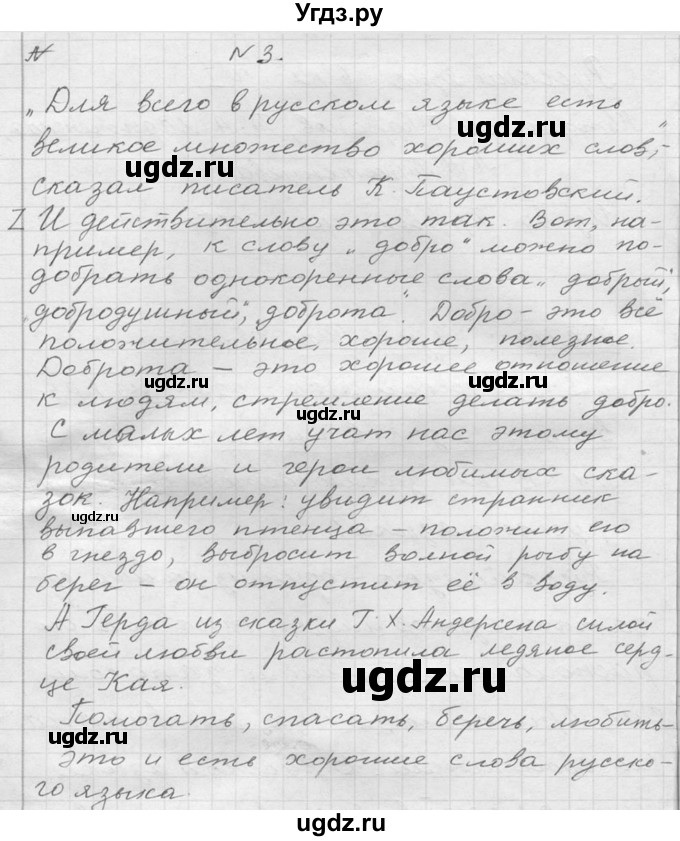 Угдз.ру
N
N 3.
„Для всего в русском языке есть
великое множество хороших слов“,-
сказал писатель К. Паустовский.
Z И действительно это так. Вот, на-
пример, к слову „добро“ можно по-
добрать однокоренные слова „добрый“,
„добродушный“, „доброта“. Добро - это всё
положительное, хорошее, полезное.
Доброта - это хорошее отношение
к людям, стремление делать добро.
С малых лет учат нас этому
родители и герои любимых ска-
зок. Например: увидит странник
выпавшего птенца - положит его
в гнездо, выбросит волной рыбу на
берег - он отпустит её в воду.
А Герда из сказки Г. Х. Андерсена силой
своей любви растопила ледяное серд-
це Кая.
Помогать, спасать, беречь, любить-
это и есть хорошие слова русско-
го языка.
ugdz.ru
ugdz.ru
ugdz.ru
ugdz.ru
ugdz.ru
ugdz.ru
ugdz.ru
ugdz.ru
ugdz.ru
ugdz.ru